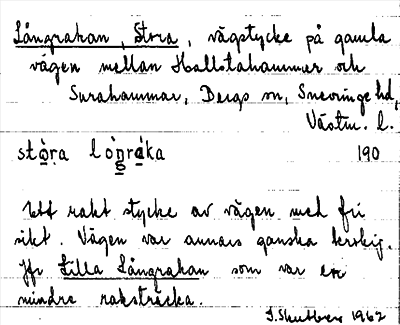 Långrakan, Stora, vägstycke på gamla
vägen mellan Hallstahammar och
Surahammar, Bergs sn, Snevringe hd,
Västm. l.
stòra lòŋráka 190
Ett rakt stycke av vägen med fri
sikt. Vägen var annars ganska krokig.
Jfr Lilla Långrakan som var en
mindre raksträcka.
1962